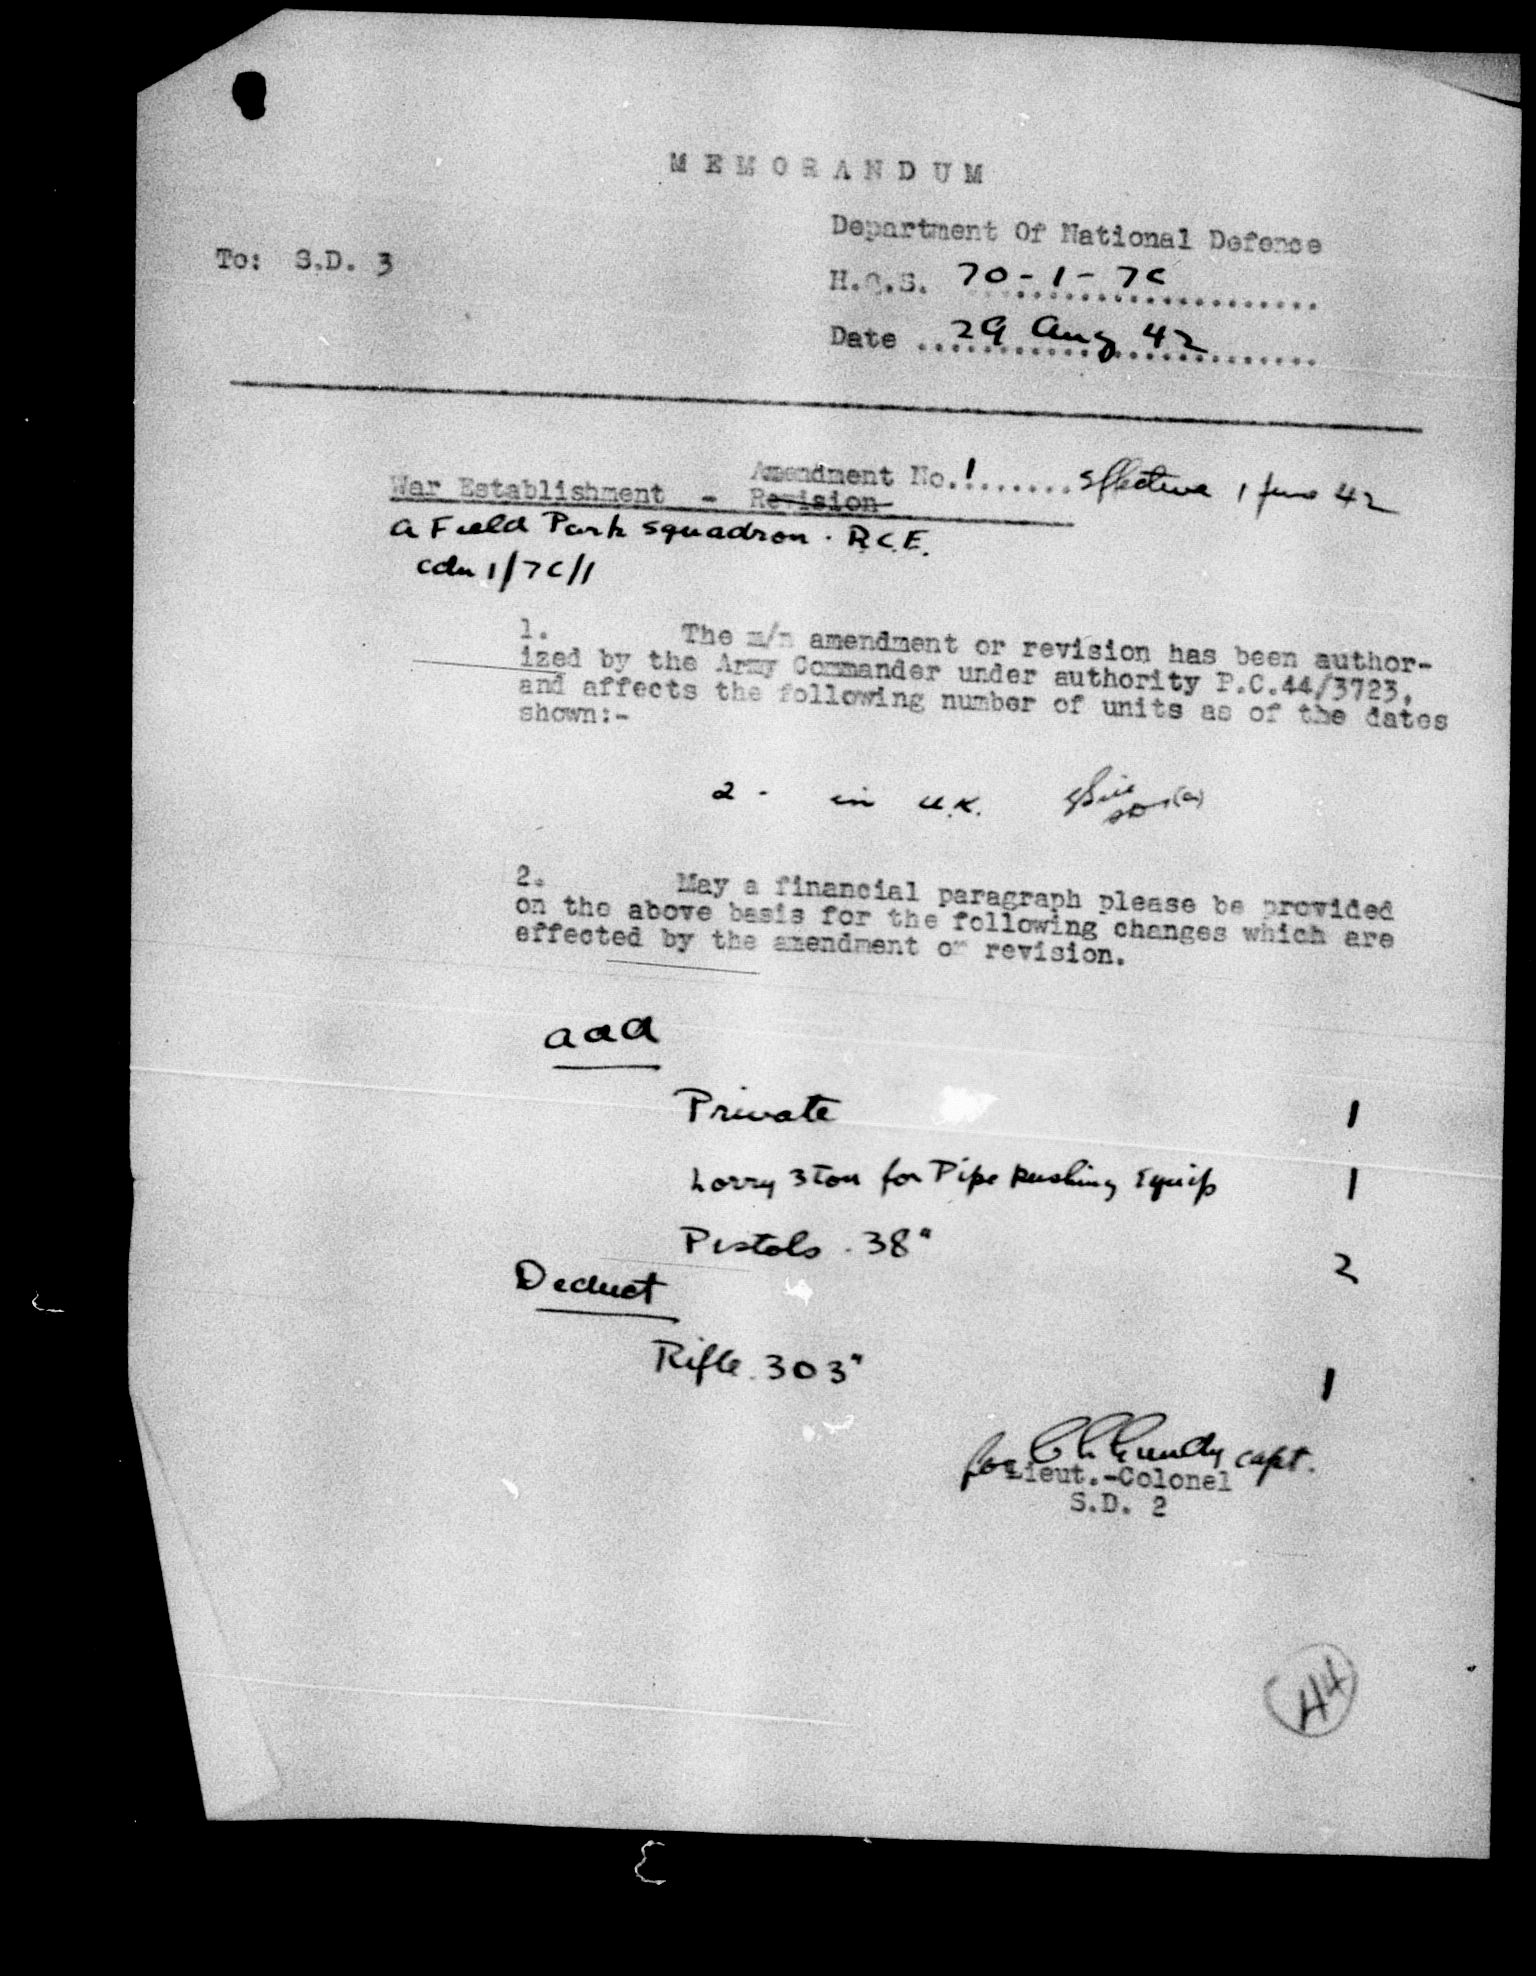 MEMORANDUM
Department Of National Defence
To: S.D. 3
H.Q.S. 70-1-7C
Date 29 Aug 42
Amendment No. 1 ....... Effective 1 June 42
War Establishment - Revision
a Field Park Squadron. R.C.E.
Cdn 1/7C/1
1. The m/n amendment or revision has been author-
ized by the Army Commander under authority P.C.44/3723,
and affects the following number of units as of the dates
shown:-
2 - in U.K.
2. May a financial paragraph please be provided
on the above basis for the following changes which are
effected by the amendment or revision.
add
Private 1
Lorry 3 Ton for Pipe Pushing Equip 1
Pistols .38" 2
Deduct
Rifle .303" 1
for Capt.
Lieut.-Colonel
S.D. 2
44